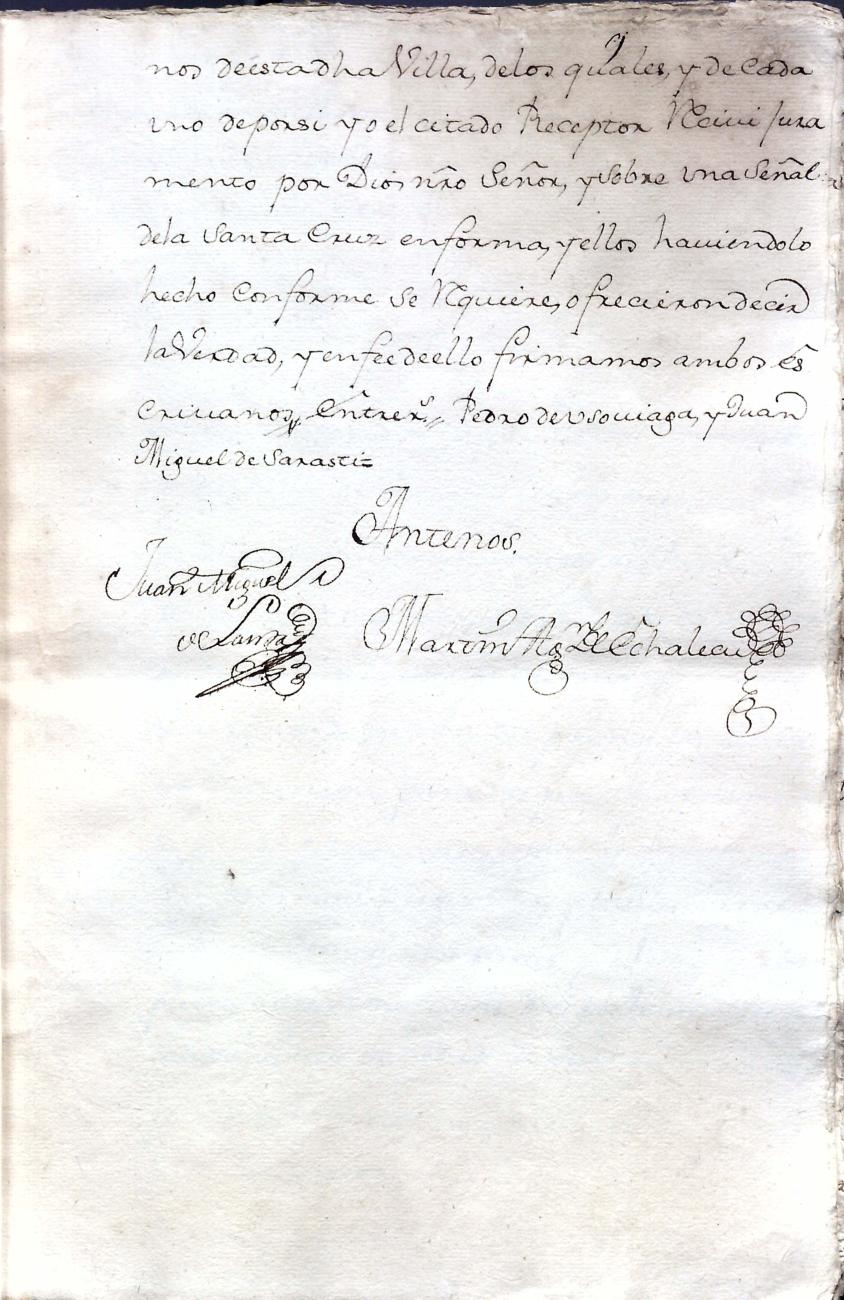 nos deesta dha Villa, delos quales, y de Cada
vno deporsi yo el citado Receptor Reciui Jura
mento por Dios nro Señor, y sobre vna Señal
dela Santa Cruz enforma, y ellos hauiendolo
hecho Conforme se Requiere, ofrecieron decir
la Verdad, y en fee de ello firmamos ambos es
criuanos, Entrer.s Pedro de Vsouiaga, y Juan
Miguel de Sarasti=
Antenos.
Juan Miguel
de
Martin Ag.n de Echalecu